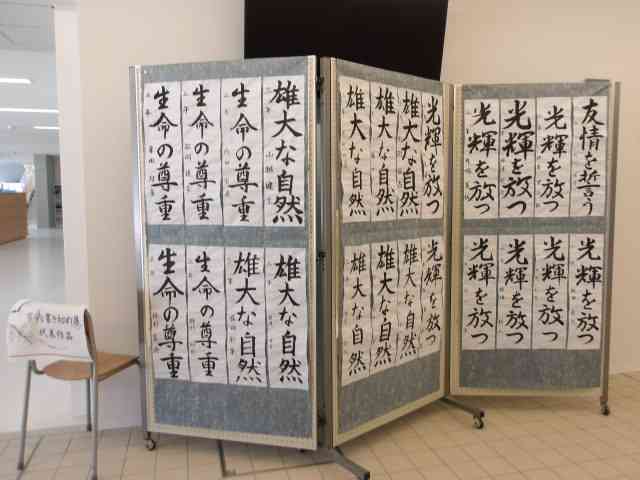 友情を誓う
光輝を放つ
光輝を放つ
光輝を放つ
光輝を放つ
光輝を放つ
光輝を放つ
光輝を放つ
光輝を放つ
雄大な自然
雄大な自然
雄大な自然
光輝を放つ
雄大な自然
雄大な自然
雄大な自然
雄大な自然
生命の尊重
生命の尊重
生命の尊重
雄大な自然
雄大な自然
生命の尊重
生命の尊重
書き初め展
代表作品